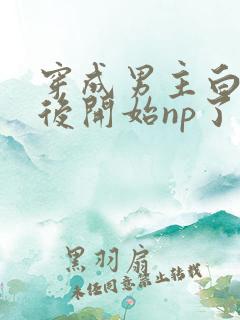 穿成男主白
後開始np了
黑羽扇
未经同意禁止转载